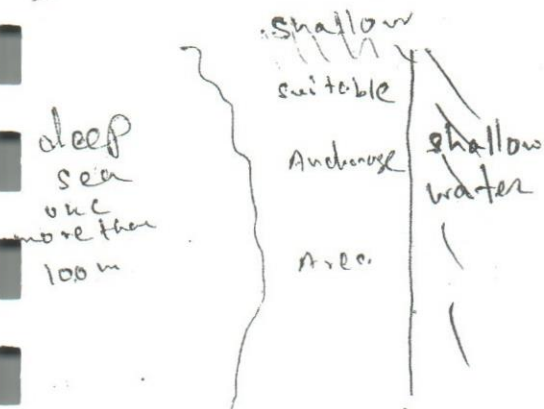 shallow
suitable
Anchorage
Area
deep
sea
more than
100 m
shallow
water